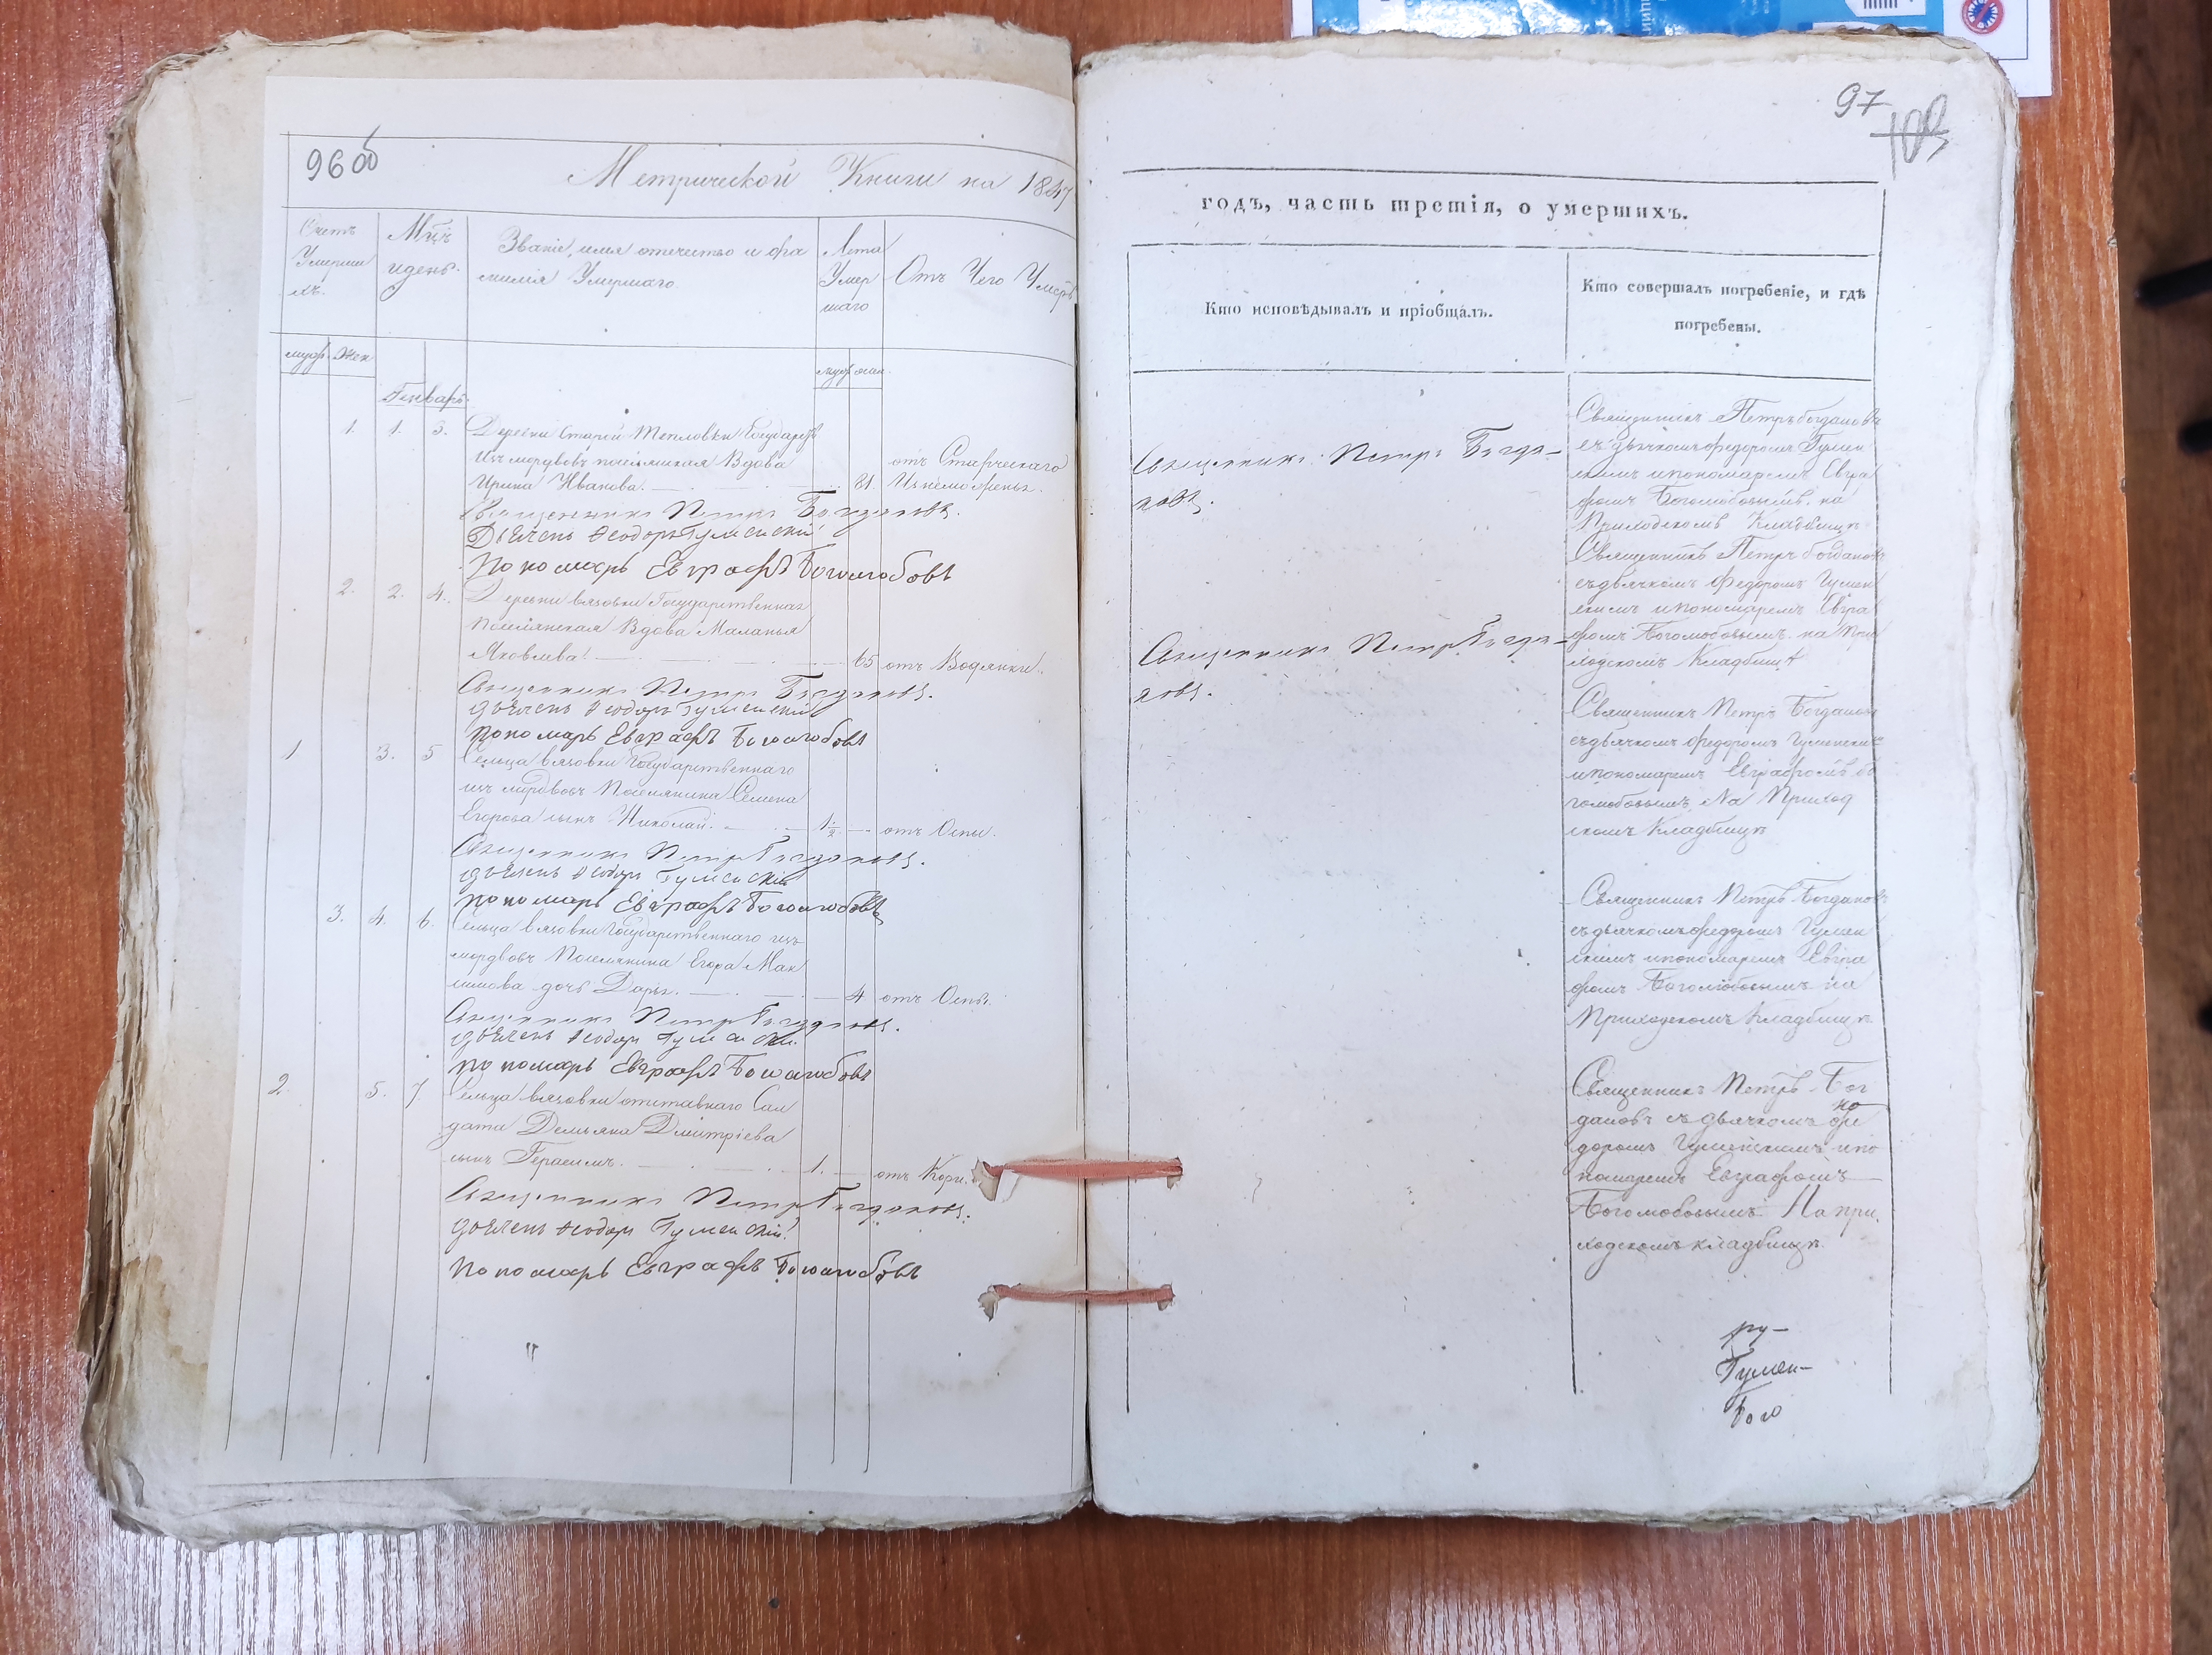 96 об
Метрической Книги на 1847
Счетъ
Умерши
хъ.
Мцъ
и день.
Званіе, имя отечество и фа
милія Умершаго
Лета
Умер
шаго
Отъ Чего Умеръ
муж. жен
муж жен.
Генварь
1. 1. 3. Деревни Старой Тепловки Государст
Изъ мордвовъ поселянская Вдова
отъ Старческаго
Ирина Иванова. 81. Изнеможенья.
Священникъ Петръ Богдановъ.
Дьячекъ Ѳеодоръ Гуменскій
Пономарь Евграфъ Боголюбовъ
2. 2. 4. Деревни Вязовки Государственная
поселянская Вдова Маланья
Яковлева. 65 отъ Водянки.
Священникъ Петръ Богдановъ.
дьячекъ Ѳеодоръ Гуменскій
пономарь Евграфъ Боголюбовъ
1 3. 5 Сельца Вязовки Государственнаго
изъ мордвовъ Поселянина Семена
Егорова сынъ Николай. 1 1/2 отъ Оспы.
Священникъ Петръ Богдановъ.
дьячекъ Ѳеодоръ Гуменскій
пономарь Евграфъ Боголюбовъ
3. 4. 6. Сельца Вязовки Государственнаго изъ
мордвовъ Поселянина Егора Мак
симова дочь Дарья. 4 отъ Оспы.
Священникъ Петръ Богдановъ.
дьячекъ Ѳеодоръ Гуменскій.
пономарь Евграфъ Боголюбовъ
2. 5. 7. Сельца Вязовки отставнаго Сал
дата Демьяна Дмитріева
сынъ Герасимъ. 1. отъ Кори.
Священникъ Петръ Богдановъ.
дьячекъ Ѳеодоръ Гуменскій
Пономарь Евграфъ Боголюбовъ
97
103
годъ, часть третія, о умершихъ.
Кто исповѣдывалъ и пріобщалъ.
Кто совершалъ погребеніе, и гдѣ
погребены.
Священникъ Петръ Богда-
новъ.
Священникъ Петръ Богда-
новъ.
Священникъ Петръ Богдановъ
съ дьячкомъ Федоромъ Гумен
скимъ и пономаремъ Евгра
фомъ Боголюбовымъ на
Приходскомъ Кладбищѣ
Священникъ Петръ Богдановъ
съ дьячкомъ Федоромъ Гумен
скимъ и пономаремъ Евгра
фомъ Боголюбовымъ на При
ходскомъ Кладбищѣ
Священникъ Петръ Богданов
съ дьячкомъ Федоромъ Гуменским
и пономаремъ Евграфомъ Бо
голюбовымъ На Приход
скомъ Кладбищѣ
Священникъ Петръ Богдановъ
съ дьячкомъ Федоромъ Гумен
скимъ и пономаремъ Евгра
фомъ Боголюбовымъ на
Приходскомъ Кладбищѣ.
Священникъ Петръ Бог
дановъ съ дьячкомъ Фе
доромъ Гуменскимъ и по
номаремъ Евграфомъ
Боголюбовымъ На при
ходскомъ кладбищѣ.
ру-
Гумен-
Бого